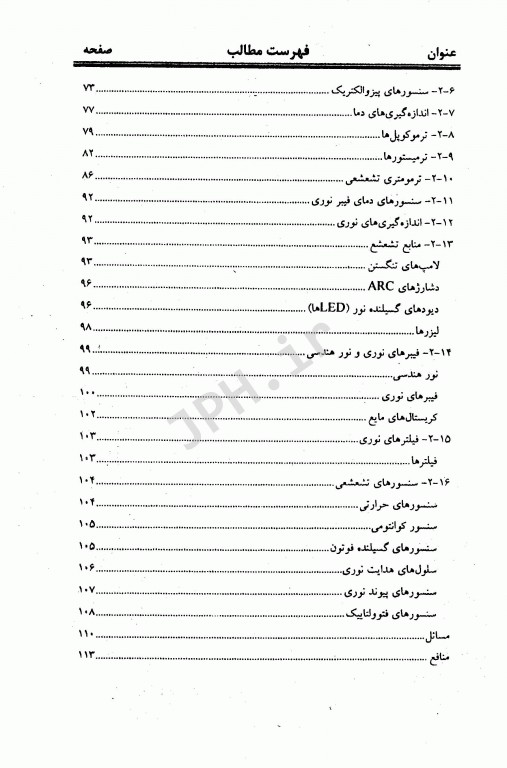 عنوان فهرست مطالب صفحه
۲-۶- سنسورهای پیزوالکتریک ........ ۷۳
۲-۷- اندازه‌گیری‌های دما ........ ۷۷
۲-۸- ترموکوپل‌ها ........ ۷۹
۲-۹- ترمیستورها ........ ۸۲
۲-۱۰- ترمومتری تشعشعی ........ ۸۶
۲-۱۱- سنسورهای دمای فیبر نوری ........ ۹۲
۲-۱۲- اندازه‌گیری‌های نوری ........ ۹۲
۲-۱۳- منابع تشعشع ........ ۹۳
لامپ‌های تنگستن ........ ۹۳
دشارژهای ARC ........ ۹۶
دیودهای گسیلنده نور (LEDها) ........ ۹۶
لیزرها ........ ۹۸
۲-۱۴- فیبرهای نوری و نور هندسی ........ ۹۹
نور هندسی ........ ۹۹
فیبرهای نوری ........ ۱۰۰
کریستال‌های مایع ........ ۱۰۲
۲-۱۵- فیلترهای نوری ........ ۱۰۳
فیلترها ........ ۱۰۳
۲-۱۶- سنسورهای تشعشعی ........ ۱۰۴
سنسورهای حرارتی ........ ۱۰۴
سنسور کوانتومی ........ ۱۰۵
سنسورهای گسیلنده فوتون ........ ۱۰۵
سلول‌های هدایت نوری ........ ۱۰۶
سنسورهای پیوند نوری ........ ۱۰۷
سنسورهای فتوولتاییک ........ ۱۰۸
مسائل ........ ۱۱۰
منافع ........ ۱۱۳
JPH.ir